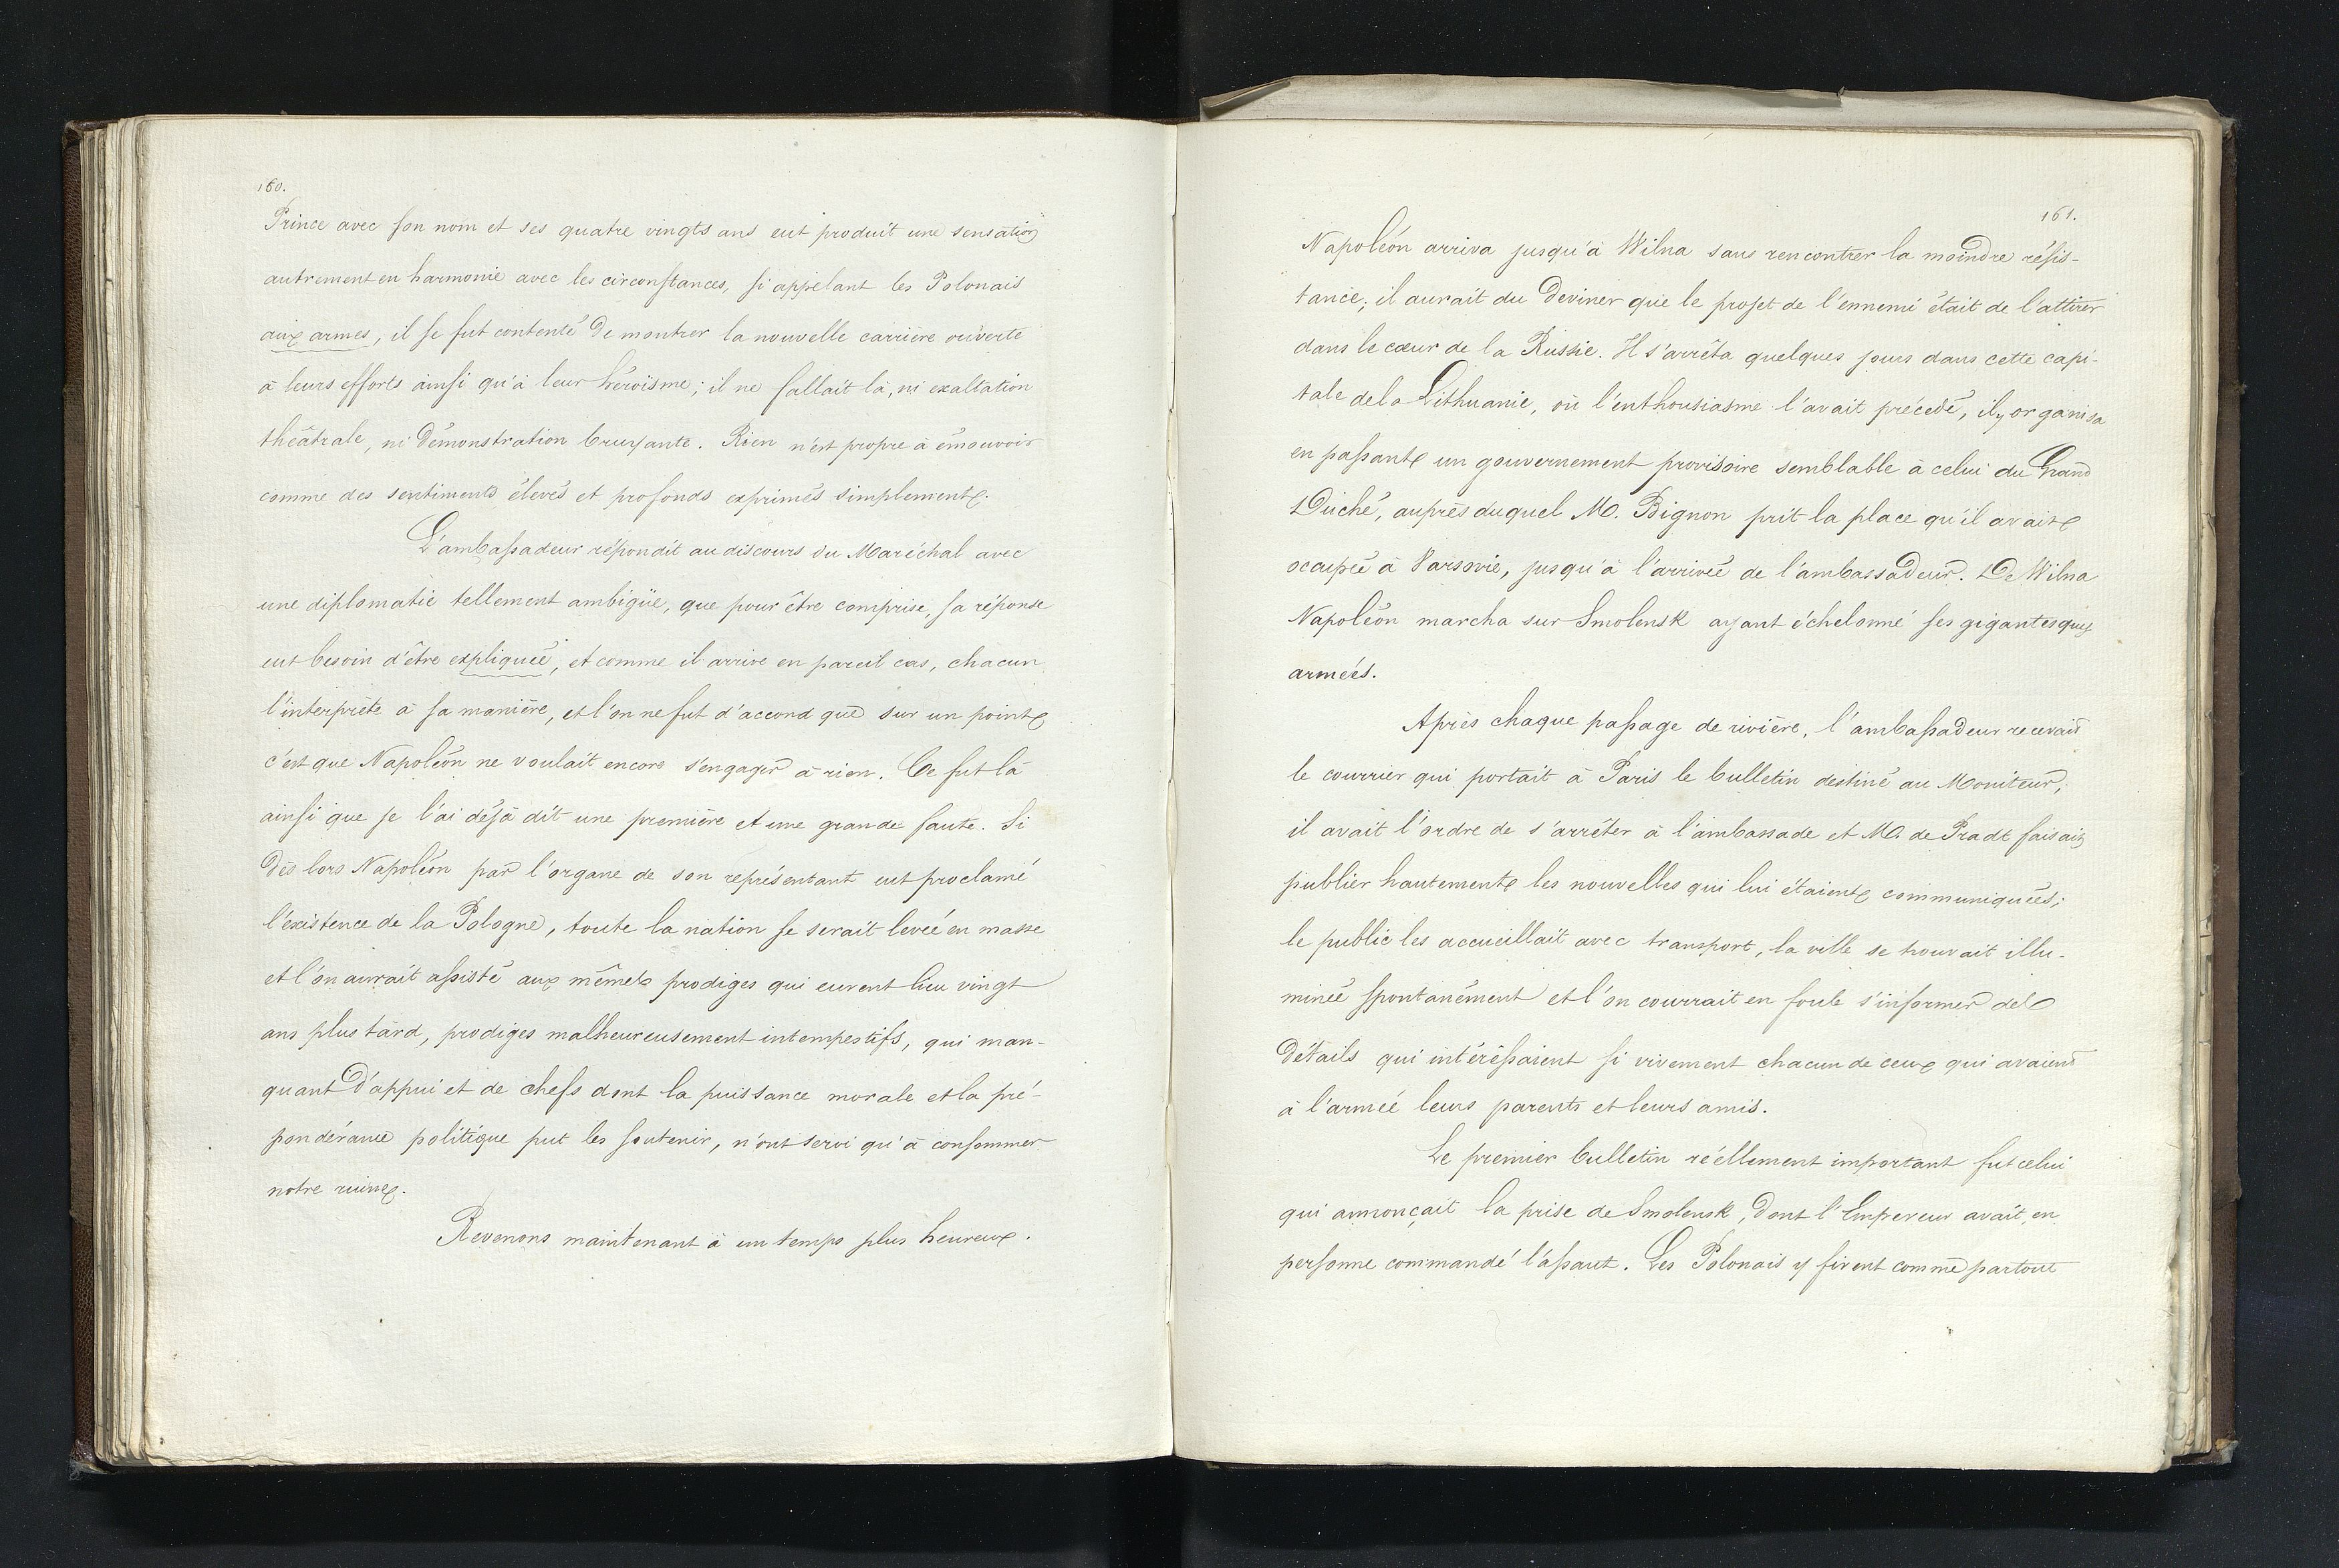 160.
Prince avec son nom et ses quatre vingts ans eut produit une sensation
autrement en harmonie avec les circonstances, si appelant les Polonais
aux armes, il se fut contenté de montrer la nouvelle carrière ouverte
à leurs efforts ainsi qu'à leur héroïsme; il ne fallait là, ni exaltation
théâtrale, ni démonstration bruyante. Rien n'est propre à émouvoir
comme des sentiments élevés et profonds exprimés simplement.
L'ambassadeur répondit au discours du Maréchal avec
une diplomatie tellement ambigüe, que pour être comprise, sa réponse
eut besoin d'être expliquée, et comme il arrive en pareil cas, chacun
l'interprête à sa manière, et l'on ne fut d'accord que sur un point
c'est que Napoléon ne voulait encore s'engager à rien. Ce fut là
ainsi que je l'ai déjà dit une première et une grande faute. Si
dès lors Napoléon par l'organe de son représentant eut proclamé
l'existence de la Pologne, toute la nation se serait levée en masse
et l'on aurait assisté aux mêmes prodiges qui eurent lieu vingt
ans plus tard, prodiges malheureusement intempestifs, qui man-
quant d'appui et de chefs dont la puissance morale et la pré-
pondérance politique put les soutenir, n'ont servi qu'à consommer
notre ruine.
Revenons maintenant à un temps plus heureux.
161.
Napoléon arriva jusqu'à Wilna sans rencontrer la moindre résis-
tance; il aurait du deviner que le projet de l'ennemi était de l'attirer
dans le cœur de la Russie. Il s'arrêta quelques jours dans cette capi-
tale de la Lithuanie, où l'enthousiasme l'avait précédé, il y organisa
en passant un gouvernement provisoire semblable à celui du Grand
Duché, auprès duquel M. Bignon prit la place qu'il avait
occupée à Varsovie, jusqu'à l'arrivée de l'ambassadeur. De Wilna
Napoléon marcha sur Smolensk ayant échelonné ses gigantesques
armées.
Après chaque passage de rivière, l'ambassadeur recevait
le courrier qui portait à Paris le bulletin destiné au Moniteur;
il avait l'ordre de s'arrêter à l'ambassade et M. de Pradt faisait
publier hautement les nouvelles qui lui étaient communiquées;
le public les accueillait avec transport, la ville se trouvait illu-
minée spontanément et l'on courrait en foule s'informer de
détails qui intéressaient si vivement chacun de ceux qui avaient
à l'armée leurs parents et leurs amis.
Le premier bulletin réellement important fut celui
qui annonçait la prise de Smolensk, dont l'Empereur avait en
personne commandé l'assaut. Les Polonais y firent comme partout